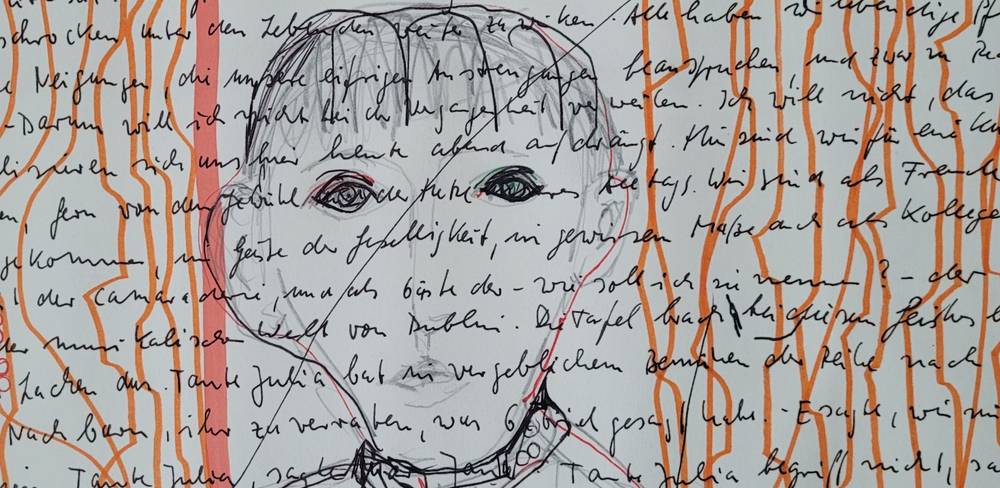 schrocken unter den Lebenden weiter zu wirken. Alle haben wir lebendige Pf
Neigungen, die unsere eifrigen Anstrengungen beanspruchen, und zwar zu Re
- Darum will ich nicht bei der Vergangenheit verweilen. Ich will nicht, das
lisieren sich uns hier heute abend aufdrängt. Hier sind wir für eine
n, fern von dem Gefühl des Alltags. Wir sind als Freunde
gekommen, im Geiste der Geselligkeit, in gewissem Maße auch als Kollege
der camaraderie, und als Gäste der - wie soll ich sie nennen? - der
der musikalischen Welt von Dublin. Die Tafel brach bei diesem
Lachen aus. Tante Julia bat in vergeblichem Bemühen der Reihe nach
Nachbarn, ihr zu verraten, was Gabriel gesagt habe. - Er sagte, wir
Tante Julia, sagte Tante Julia begriff nicht, sa